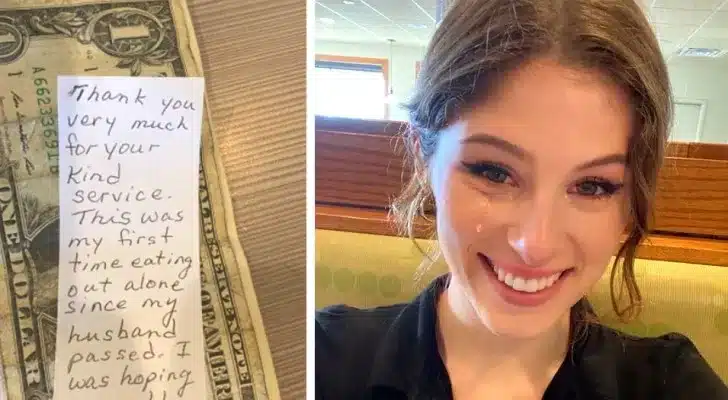 Thank you
very much
for your
kind
service.
This was
my first
time eating
out alone
since my
husband
passed. I
was hoping
1
1
A6623369
ONE DOLLAR